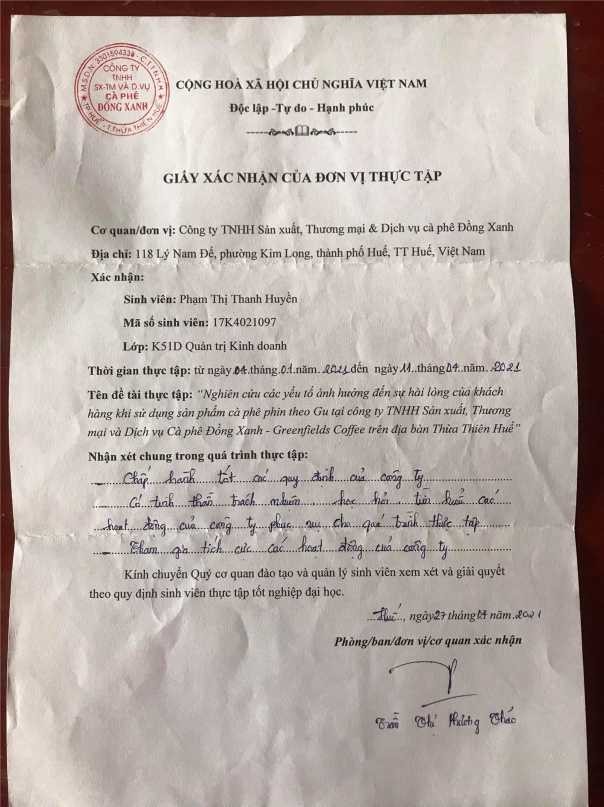 M.S.D.N: 3301594338 - C.T.T.N.H.H
CÔNG TY
TNHH
SX-TM VÀ D.VỤ
CÀ PHÊ
ĐỒNG XANH
TP HUẾ - T.THỪA THIÊN HUẾ
CỘNG HOÀ XÃ HỘI CHỦ NGHĨA VIỆT NAM
Độc lập -Tự do - Hạnh phúc
GIẤY XÁC NHẬN CỦA ĐƠN VỊ THỰC TẬP
Cơ quan/đơn vị: Công ty TNHH Sản xuất, Thương mại & Dịch vụ cà phê Đồng Xanh
Địa chỉ: 118 Lý Nam Đế, phường Kim Long, thành phố Huế, TT Huế, Việt Nam
Xác nhận:
Sinh viên: Phạm Thị Thanh Huyền
Mã số sinh viên: 17K4021097
Lớp: K51D Quản trị Kinh doanh
Thời gian thực tập: từ ngày 04 tháng 01 năm 2021 đến ngày 11 tháng 04 năm 2021
Tên đề tài thực tập: "Nghiên cứu các yếu tố ảnh hưởng đến sự hài lòng của khách
hàng khi sử dụng sản phẩm cà phê phin theo Gu tại công ty TNHH Sản xuất, Thương
mại và Dịch vụ Cà phê Đồng Xanh - Greenfields Coffee trên địa bàn Thừa Thiên Huế"
Nhận xét chung trong quá trình thực tập:
Chấp hành tốt các quy định của công ty
Có tinh thần trách nhiệm, học hỏi, tìm hiểu các
hoạt động của công ty phục vụ cho quá trình thực tập
Tham gia tích cực các hoạt động của công ty
Kính chuyển Quý cơ quan đào tạo và quản lý sinh viên xem xét và giải quyết
theo quy định sinh viên thực tập tốt nghiệp đại học.
Huế, ngày 27 tháng 04 năm 2021
Phòng/ban/đơn vị/cơ quan xác nhận
Trần Thị Phương Thảo